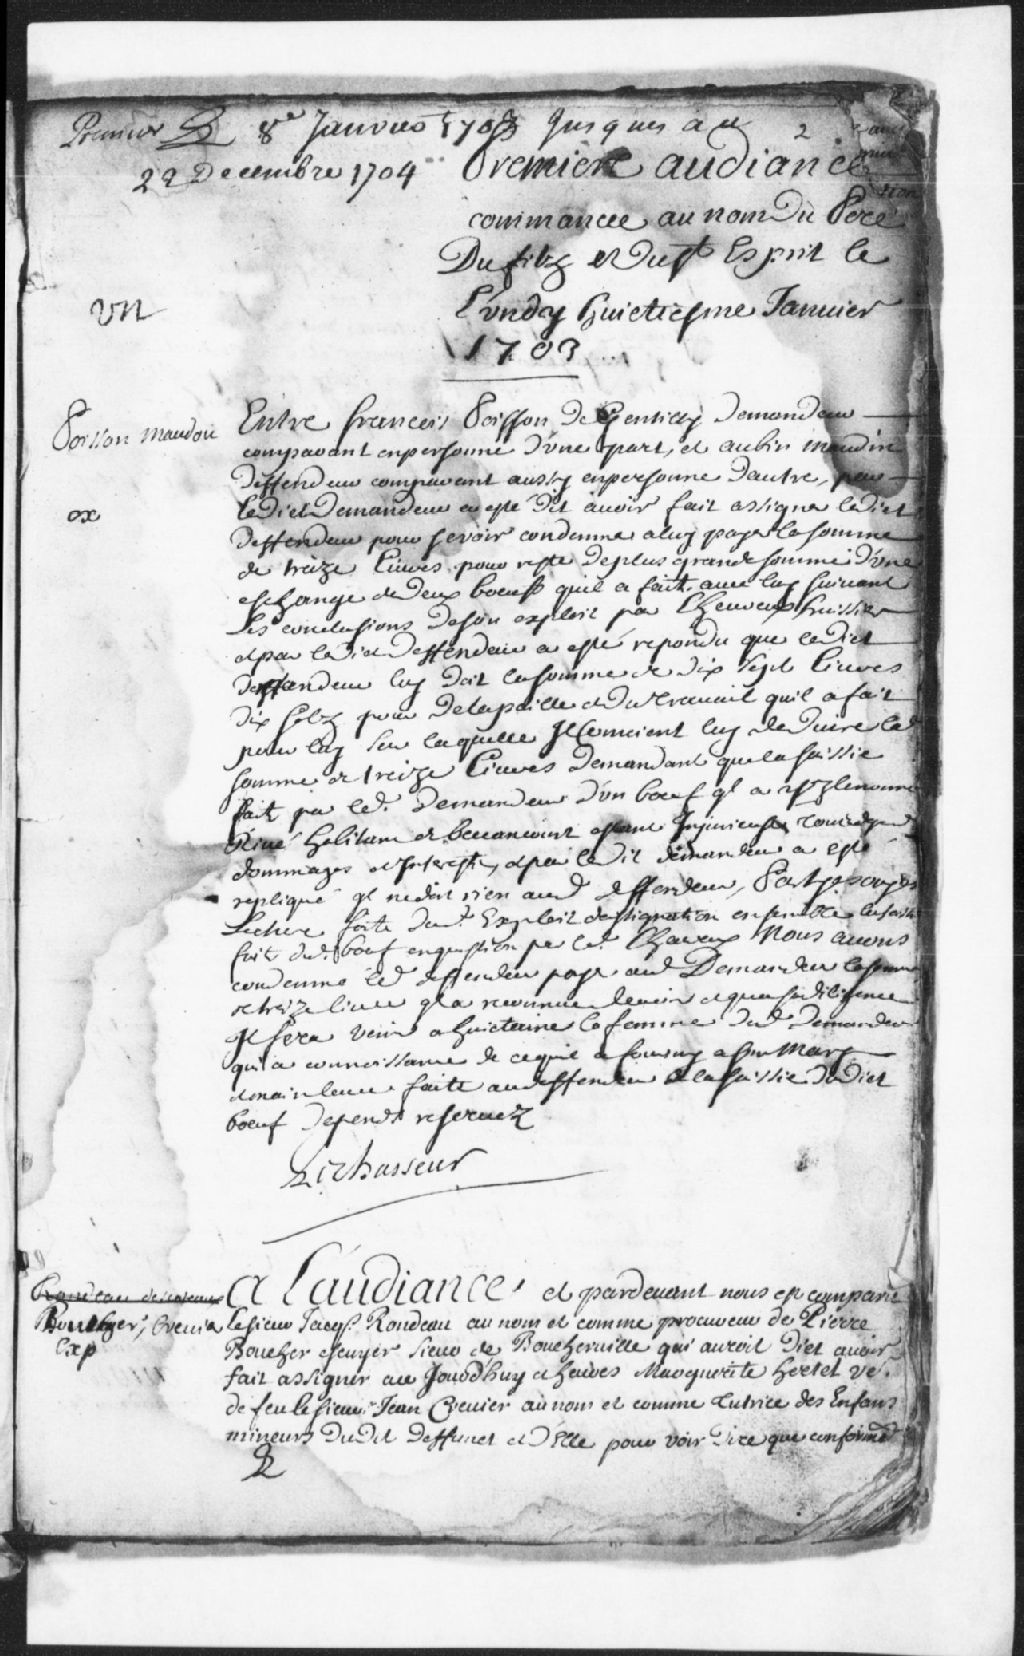 Premier 8re Janvier 1703 Jusques au 2
22 Decembre 1704
Premiere audiance
commancee au nom Du Pere
Du filz et Du st Esprit le
Lundy huictiesme Januier
1703
Vn
Poisson maudou
ex
Entre francois Poisson de Gentilly demandeur
comparant en personne d'vne part, et aubin maudou
deffendeur comparant aussy en personne d'autre, par
ledict demandeur a esté dit auoir fait assigner ledict
deffendeur pour se voir condamné a luy payer la somme
de treize liures pour reste de plus grande somme d'vne
eschange de deux boeufs quil a fait auec luy suiuant
les conclusions de son exploit par huissier
et par ledict deffendeur a esté repondu que ledict
deffendeur luy doit la somme de dix sept liures
dix solz pour de la paille et du trauail quil a fait
pour luy sur laquelle Il conuient luy deduire lad
somme de treize liures demandant que la saissie
fait par led. demandeur d'un boeuf
habitant de becancourt estant Injurieuse
dommages et Interests, et par le dit demandeur a esté
repliqué ql ne doit rien aud deffendeur, Parties ouyes
lecture faite dud. Exploit d'assignation ensemble la saisie
fait dud. boeuf en question par led. Nous auons
condamné led deffendeur payer aud Demandeur la somme
de treize liures ql a reconnu deuoir et qua sa dilligence
Il fera venir a huictaine la femme dud demandeur
qui a connoissance de ce quil a fourny a son Mary
et main leuee faite au deffendeur de la saissie dudict
boeuf depends reseruez
Lechasseur
Boucher, Creuier
Exp
A L'audiance et pardeuant nous est comparu
le sieur Jacqs. Rondeau au nom et comme procureur de Pierre
Boucher escuyer sieur de Boucheruille qui auroit dict auoir
fait assigner au Jourdhuy et heures Marguerite hertel ve.
de feu le sieur Jean Creuier au nom et comme tutrice des Enfans
mineurs dudit deffunct et d'Elle pour voir dire que conformet